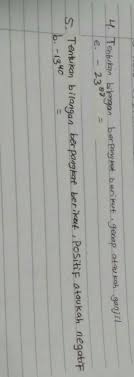 4. Tentukan bilangan berpangkat berikut, genap ataukah ganjil
e. - 23⁰² =
5. Tentukan bilangan berpangkat berikut, positif ataukah negatif
b. -13⁴⁰
=